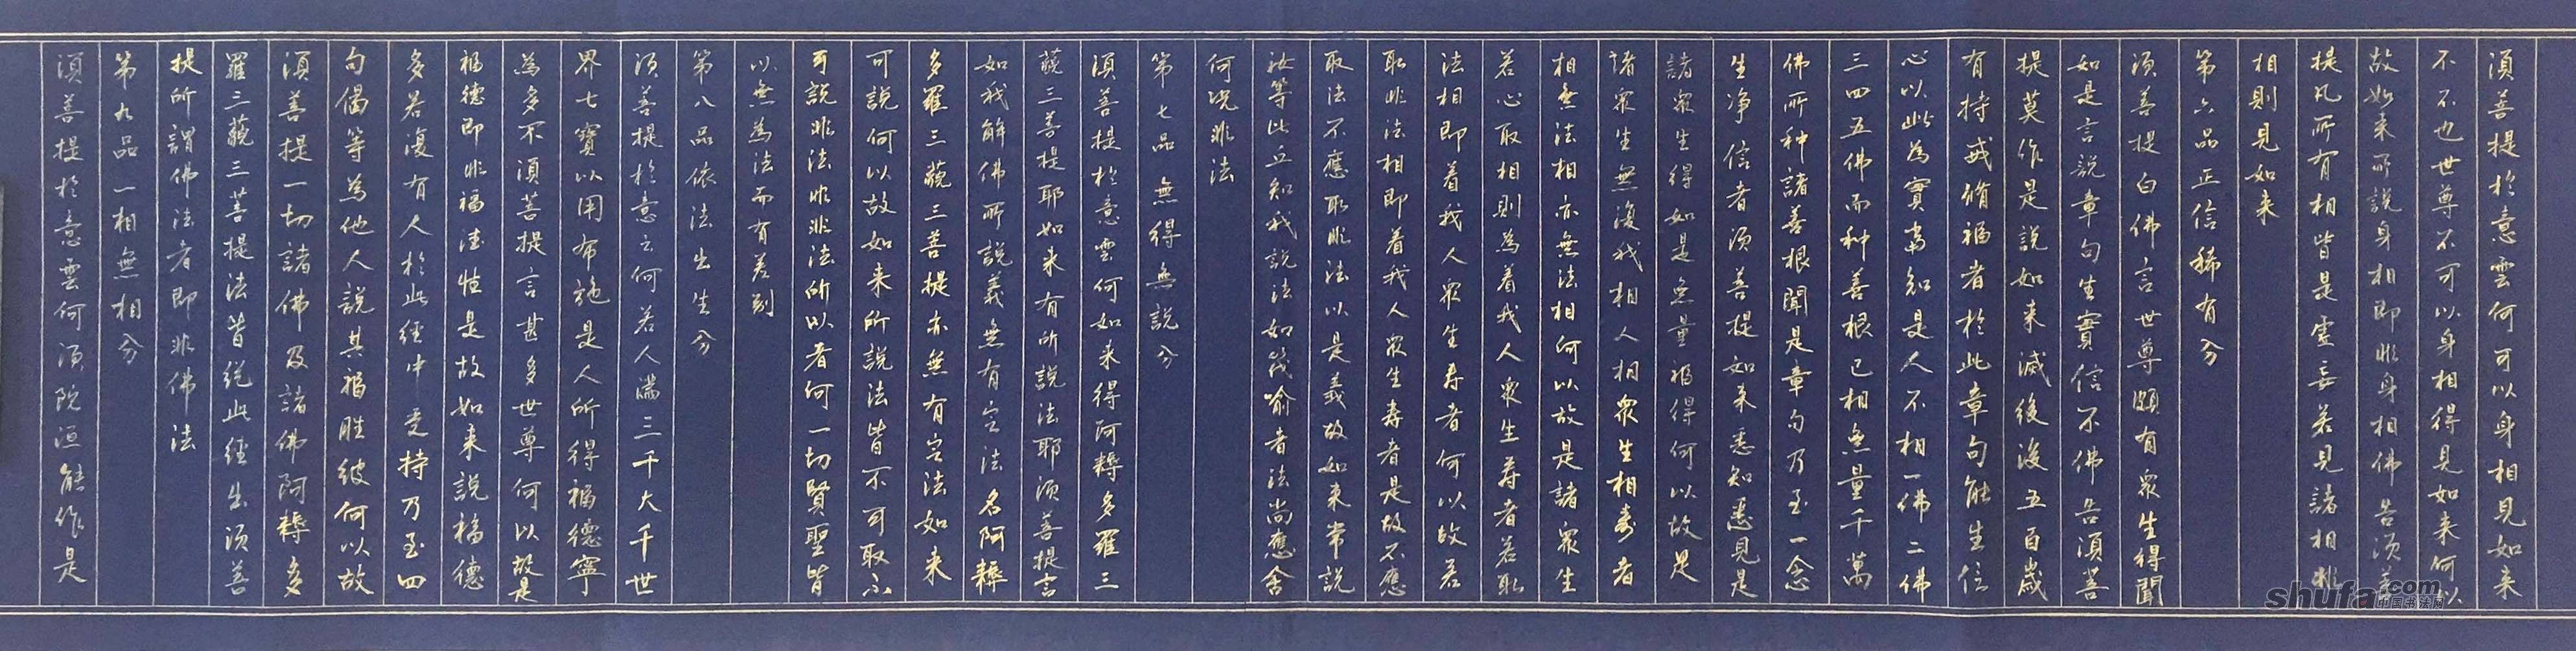 須菩提於意雲何可以身相見如来
不不也世尊不可以身相得見如来何以
故如来所說身相即非身相佛告須菩
提凡所有相皆是虛妄若見諸相非
相則見如来
第六品正信稀有分
須菩提白佛言世尊頗有眾生得聞
如是言說章句生實信不佛告須菩
提莫作是說如来滅後後五百歲
有持戒脩福者於此章句能生信
心以此為實當知是人不相一佛二佛
三四五佛而种善根已相無量千萬
佛所种諸善根聞是章句乃至一念
生净信者須菩提如来悉知悉見是
諸眾生得如是無量福得何以故是
諸眾生無復我相人相眾生相壽者
相無法相亦無法相何以故是諸眾生
若心取相則為着我人眾生壽者若取
法相即着我人眾生壽者何以故若
取非法相即着我人眾生壽者是故不應
取法不應取非法以是義故如来常說
汝等比丘知我說法如筏喻者法尚應舍
何況非法
第七品無得無說分
須菩提於意雲何如来得阿耨多羅三
藐三菩提耶如来有所說法耶須菩提言
如我解佛所說義無有定法名阿耨
多羅三藐三菩提亦無有定法如来
可說何以故如来所說法皆不可取不
可說非法非非法所以者何一切賢聖皆
以無為法而有差别
第八品依法出生分
須菩提於意云何若人滿三千大千世
界七寶以用布施是人所得福德寧
為多不須菩提言甚多世尊何以故是
福德即非福德性是故如来說福德
多若復有人於此經中受持乃至四
句偈等為他人說其福胜彼何以故
須菩提一切諸佛及諸佛阿耨多
羅三藐三菩提法皆從此經出須菩
提所謂佛法者即非佛法
第九品一相無相分
須菩提於意雲何須陀洹能作是
shufa.com
中国书法网